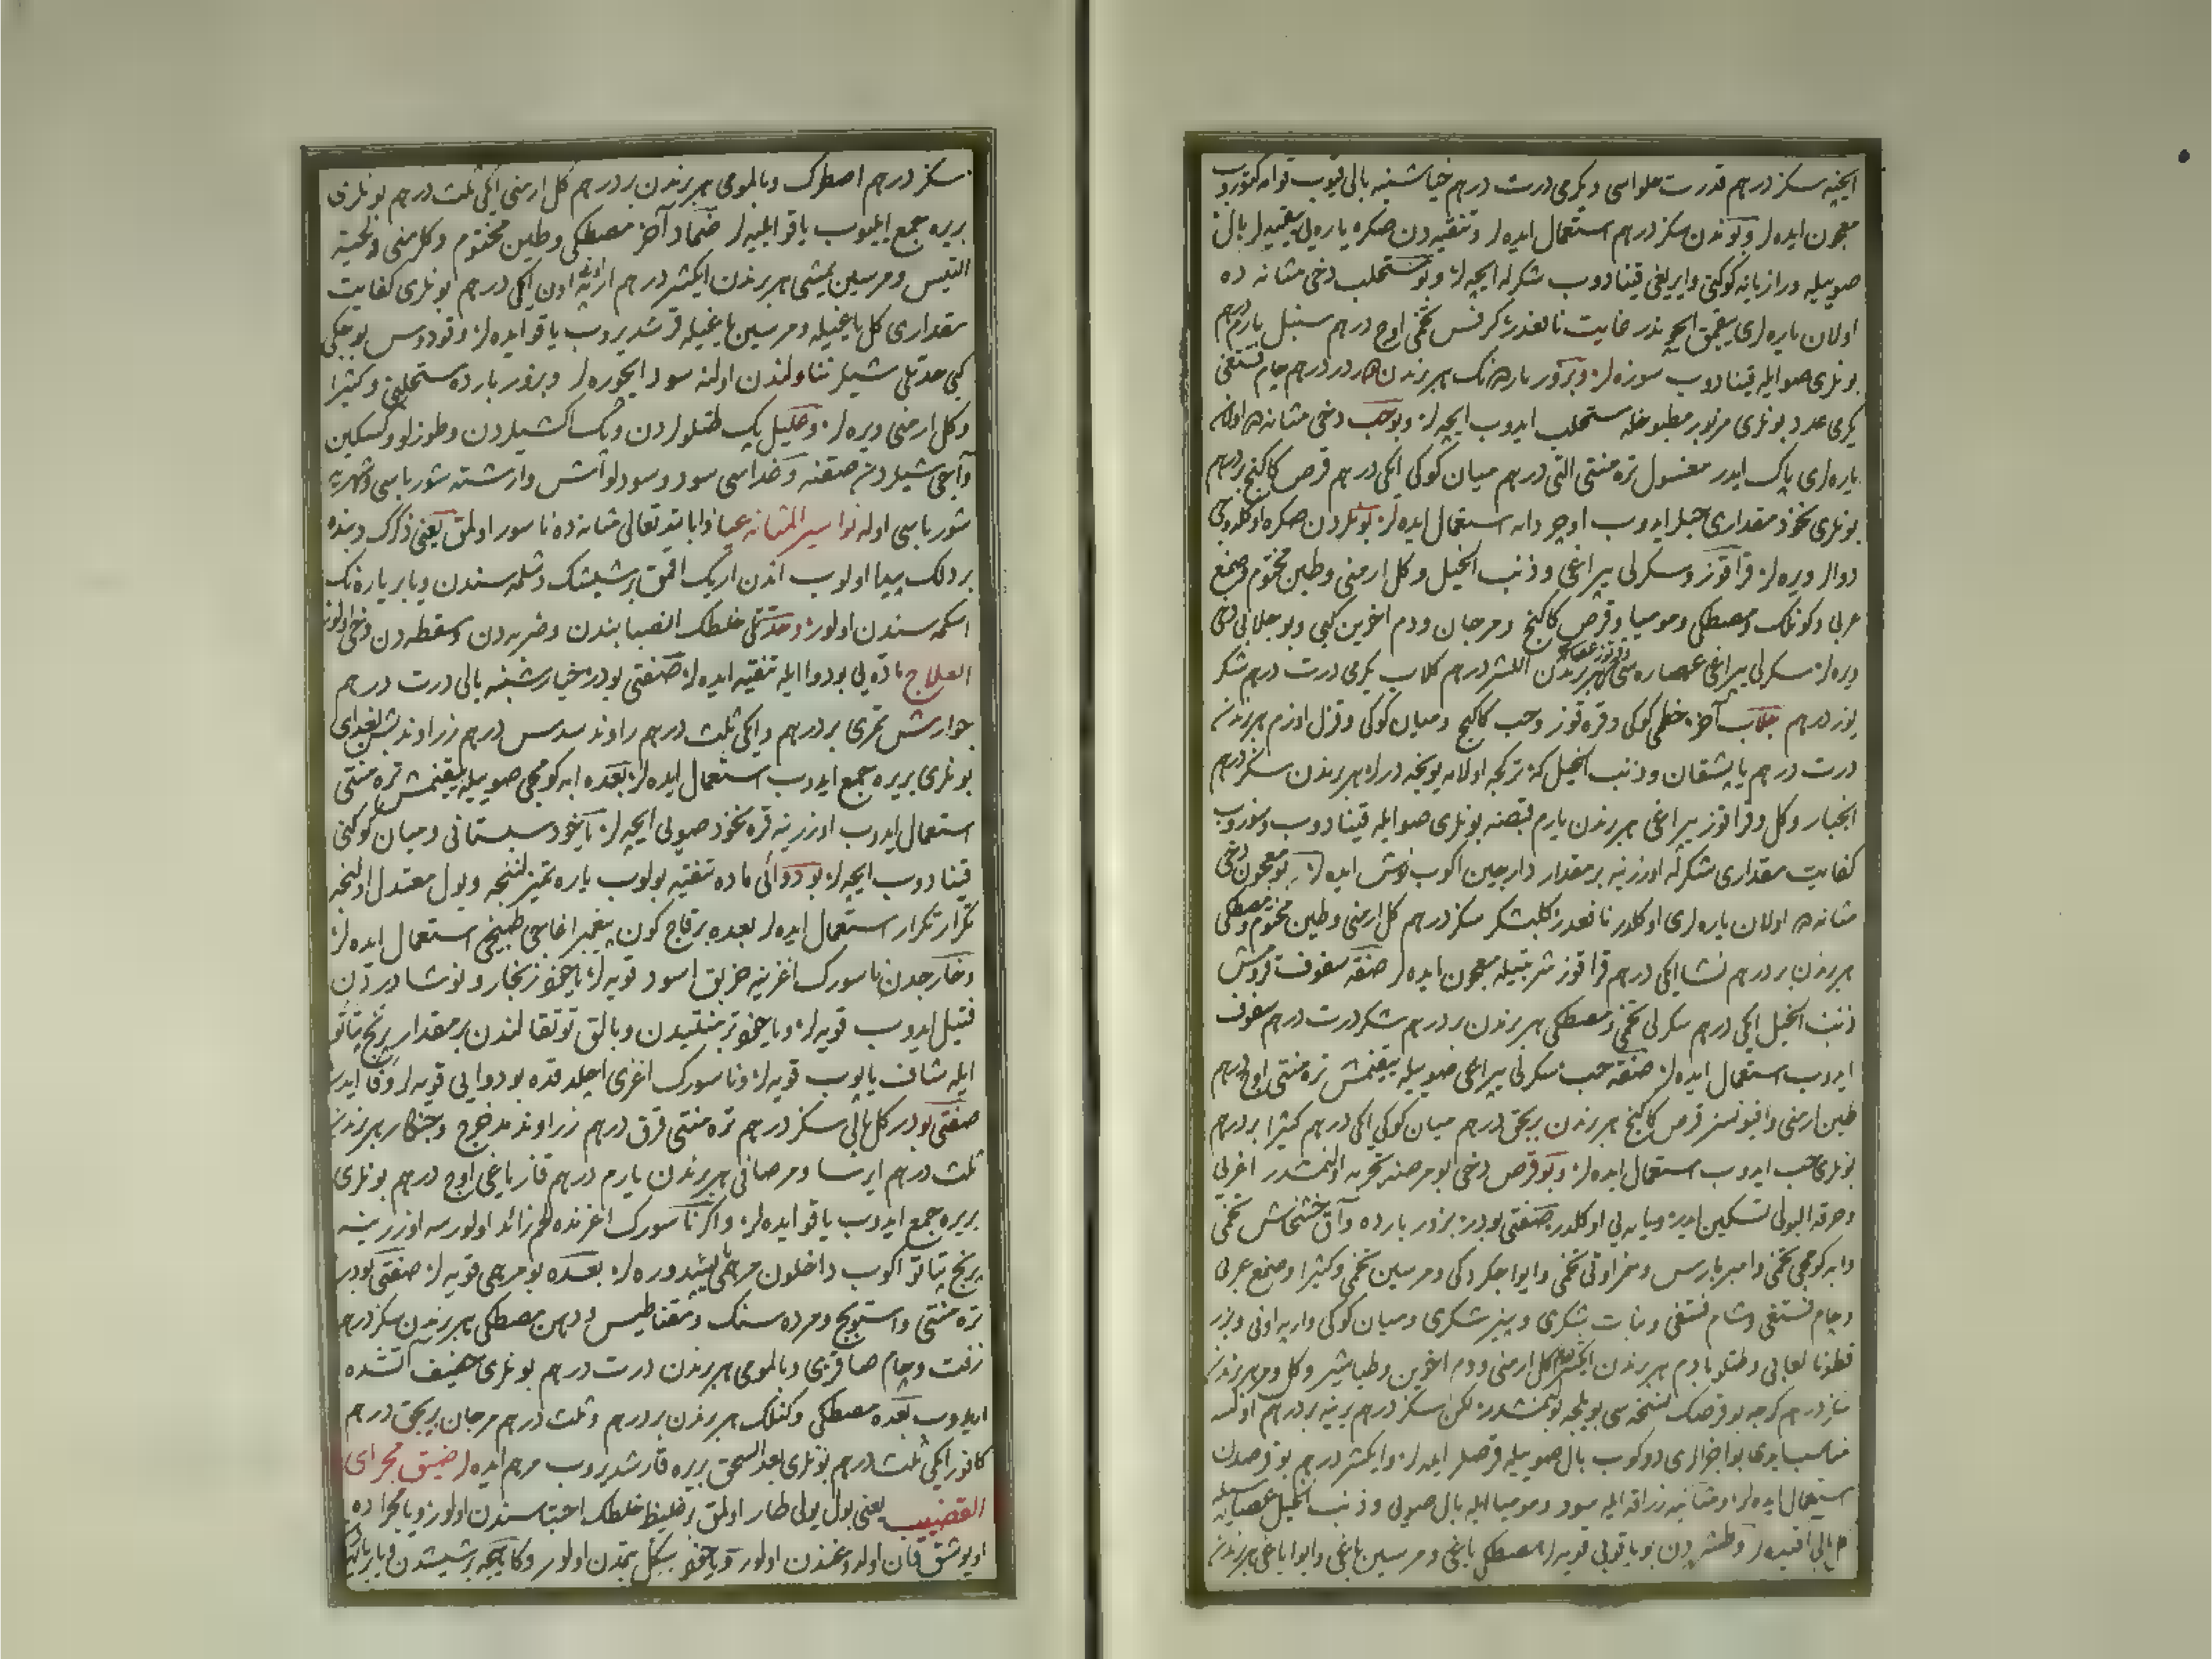 ایچنه سکز درهم قدرت حلواسی و یکرمی درت درهم خیارشنبه بالی قیوب قوامه کتوروب
معجون ایده لر و بوندن سکز درهم استعمال ایده لر و تنقیه دن صکره یاره یی یقیه لر بال
صوییله و رازیانه کوکنی و ایریغی قینادوب شکرله ایچه لر و بو مستحلب دخی مثانه ده
اولان یاره لری یقمق ایچوندر غایت نافعدر کرفس تخمی اوچ درهم سنبل یارم درهم
بونلری صو ایله قینادوب سوزه لر و بزور بارده نک هر برندن درهم چام فستقی
یکرمی عدد بونلری مزبور مطبوخله مستحلب ایدوب ایچه لر و بو حب دخی مثانه ده اولان
یاره لری پاک ایدر مغسول تره منتی التی درهم میان کوکی ایکی درهم قرص کاکنج بر درهم
بونلری نخود مقداری حبلر ایدوب اوچر دانه استعمال ایده لر بونلردن صکره اوکلدیجی
دوالر ویره لر قراقوز و سکرلی یپراغی و ذنب الخیل و کل ارمنی و طین مختوم و صمغ
عربی و کونلک و مصطکی و مومیا و قرص کاکنج و مرجان و دم اخوین کبی و بو جلابی دخی
ویره لر سکرلی یپراغی عصاره سی هر برندن اللیشر درهم کلاب یکرمی درت درهم شکر
یوز درهم جلاب آخر خطمی کوکی و قره قوز و حب کاکنج و میان کوکی و قزل اوزم هر برندن
درت درهم یاپشقان و ذنب الخیل که ترکجه اولامه یونجه دیرلر هر برندن سکز درهم
انجبار و کل و قراقوز یپراغی هر برندن یارم قبضه بونلری صو ایله قینادوب و سوزوب
کفایت مقداری شکرله اوزرینه بر مقدار دارچین اکوب نوش ایده لر بو معجون دخی
مثانه ده اولان یاره لری اوکلدر نافعدر کلبشکر سکز درهم کل ارمنی و طین مختوم و مصطکی
هر برندن بر درهم نشا ایکی درهم قراقوز شربتیله معجون ایده لر صفه سفوف
ذنب الخیل ایکی درهم سکرلی تخمی و مصطکی هر برندن بر درهم شکر درت درهم سفوف
ایدوب استعمال ایده لر صفه حب سکرلی یپراغی صوییله یقنمش تره منتی اوچ درهم
طین ارمنی و افیونسز قرص کاکنج هر برندن بر بچق درهم میان کوکی ایکی درهم کثیرا بر درهم
بونلری حب ایدوب استعمال ایده لر و بو قرص دخی بو مرضه تجربه اولنمشدر اغریی
و حرقة البولی تسکین ایدر و یاره یی اوکلدر صنعتی بودر بزور بارده و آق خشخاش تخمی
و ابه کومجی تخمی و امبر باریس و سمز اوتی تخمی و ایوا چکردکی و مرسین تخمی و کثیرا و صمغ عربی
و چام فستقی و شام فستقی و نبات شکری و پنیر شکری و میان کوکی و ارپه اونی و بزر
قطونا لعابی و طتلو بادم هر برندن ایکیشر درهم کل ارمنی و دم اخوین و طباشیر و کل و مر هر برندن
درهم کرچه بو قرصک نسخه سی بویلجه بولنمشدر لکن سکز درهم یرینه بر درهم اولسه
مناسب ایدی بو اجزالری دوکوب بال صوییله قرصلر ایده لر و ایکیشر درهم بو قرصدن
استعمال ایده لر و مثانیه زراقه ایله سود و مومیا ایله بال صویی و ذنب الخیل عصاره سیله
بالی اقیده لر و طشره دن بو یاقویی قویه لر مصطکی یاغی و مرسین یاغی و ایوا یاغی هر برندن
سکز درهم اصطرک و بالمومی هر برندن بر درهم کل ارمنی ایکی ثلث درهم بونلری
بریره جمع ایلیوب یاقو ایلیه لر ضماد آخر مصطکی و طین مختوم و کل ارمنی و لحیة
التیس و مرسین یمشی هر برندن ایکیشر درهم ارپه اونی اون ایکی درهم بونلری کفایت
مقداری کل یاغیله و مرسین یاغیله قرشدیروب یاقو ایده لر و قودوس بوجکی
کبی حدتلی شیلر تناولندن اولنه سود ایچوره لر و بزور بارده مستحلبنی و کثیرا
و کل ارمنی ویره لر و علیل پک طتلولردن و پک اکشیلردن و طوزلو و کسکین
و آجی شیلردن صقنه و غداسی سود و سودلو آش و ارشته شورباسی و شهریه
شورباسی اوله نواسیر المثانه عیاذا بالله تعالی مثانه ده ناسور اولمق یعنی ذکرک دبنده
بر دلک پیدا اولوب اندن ارک اقمق بر شیشک دشلمه سندن و یا بر یاره نک
اسکمه سندن اولور و حدتلی خلطک انصبابندن و ضربه دن و سقطه دن دخی اولور
العلاج ماده یی بو دوا ایله تنقیه ایده لر صنعتی بودر خیارشنبه بالی درت درهم
جوارش تمری بر درهم و ایکی ثلث درهم راوند سدس درهم زراوند بش بغدای
بونلری بریره جمع ایدوب استعمال ایده لر بعده ابه کومجی صوییله یقنمش تره منتی
استعمال ایدوب اوزرینه قره نخود صویی ایچه لر یاخود سبستانی و میان کوکنی
قینادوب ایچه لر بو دوائی ماده تنقیه بولوب یاره تمیزلنجه و بول معتدل اولنجه
تکرار تکرار استعمال ایده لر بعده بر قاچ کون پیغمبر اغاجی طبیخی استعمال ایده لر
و خارجدن ناسورک اغزینه خربق اسود قویه لر یاخود زنجار و نوشادردن
فتیل ایدوب قویه لر و یاخود تربنتیدن و بالق توتقالندن بر مقدار
ایله شاف یاپوب قویه لر و ناسورک اغزی اچلدقده بو دوایی قویه لر
صنعتی بودر کل بالی سکز درهم تره منتی قرق درهم زراوند مدحرج و جنکار هر برندن
ثلث درهم ایرسا و مر صافی هر برندن یارم درهم قاز یاغی اوچ درهم بونلری
بریره جمع ایدوب یاقو ایده لر و اکر ناسورک اغزنده لحم زائد اولورسه اوزرینه
اکوب داخلون مرهمی یپشدوره لر بعده بو مرهمی قویه لر صنعتی بودر
تره منتی و استوبج و مرده سنک و مقناطیس و دهن مصطکی هر برندن سکز درهم
زفت و چام صاقزی و بالمومی هر برندن درت درهم بونلری خفیف آتشده
ایدوب بعده مصطکی و کنلک هر برندن بر درهم و ثلث درهم مرجان بر بچق درهم
کافور ایکی ثلث درهم بونلری بعد السحق بریره قارشدیروب مرهم ایده لر ضیق مجرای
القضیب یعنی بول یولی طار اولمق بر غلیظ خلطک احتباسندن اولور و یا مجراده
اویوشق قان اولدوغندن اولور و یاخود سکل بتمدن اولور و کاهیجه بر شیشدن و یا بر یاره